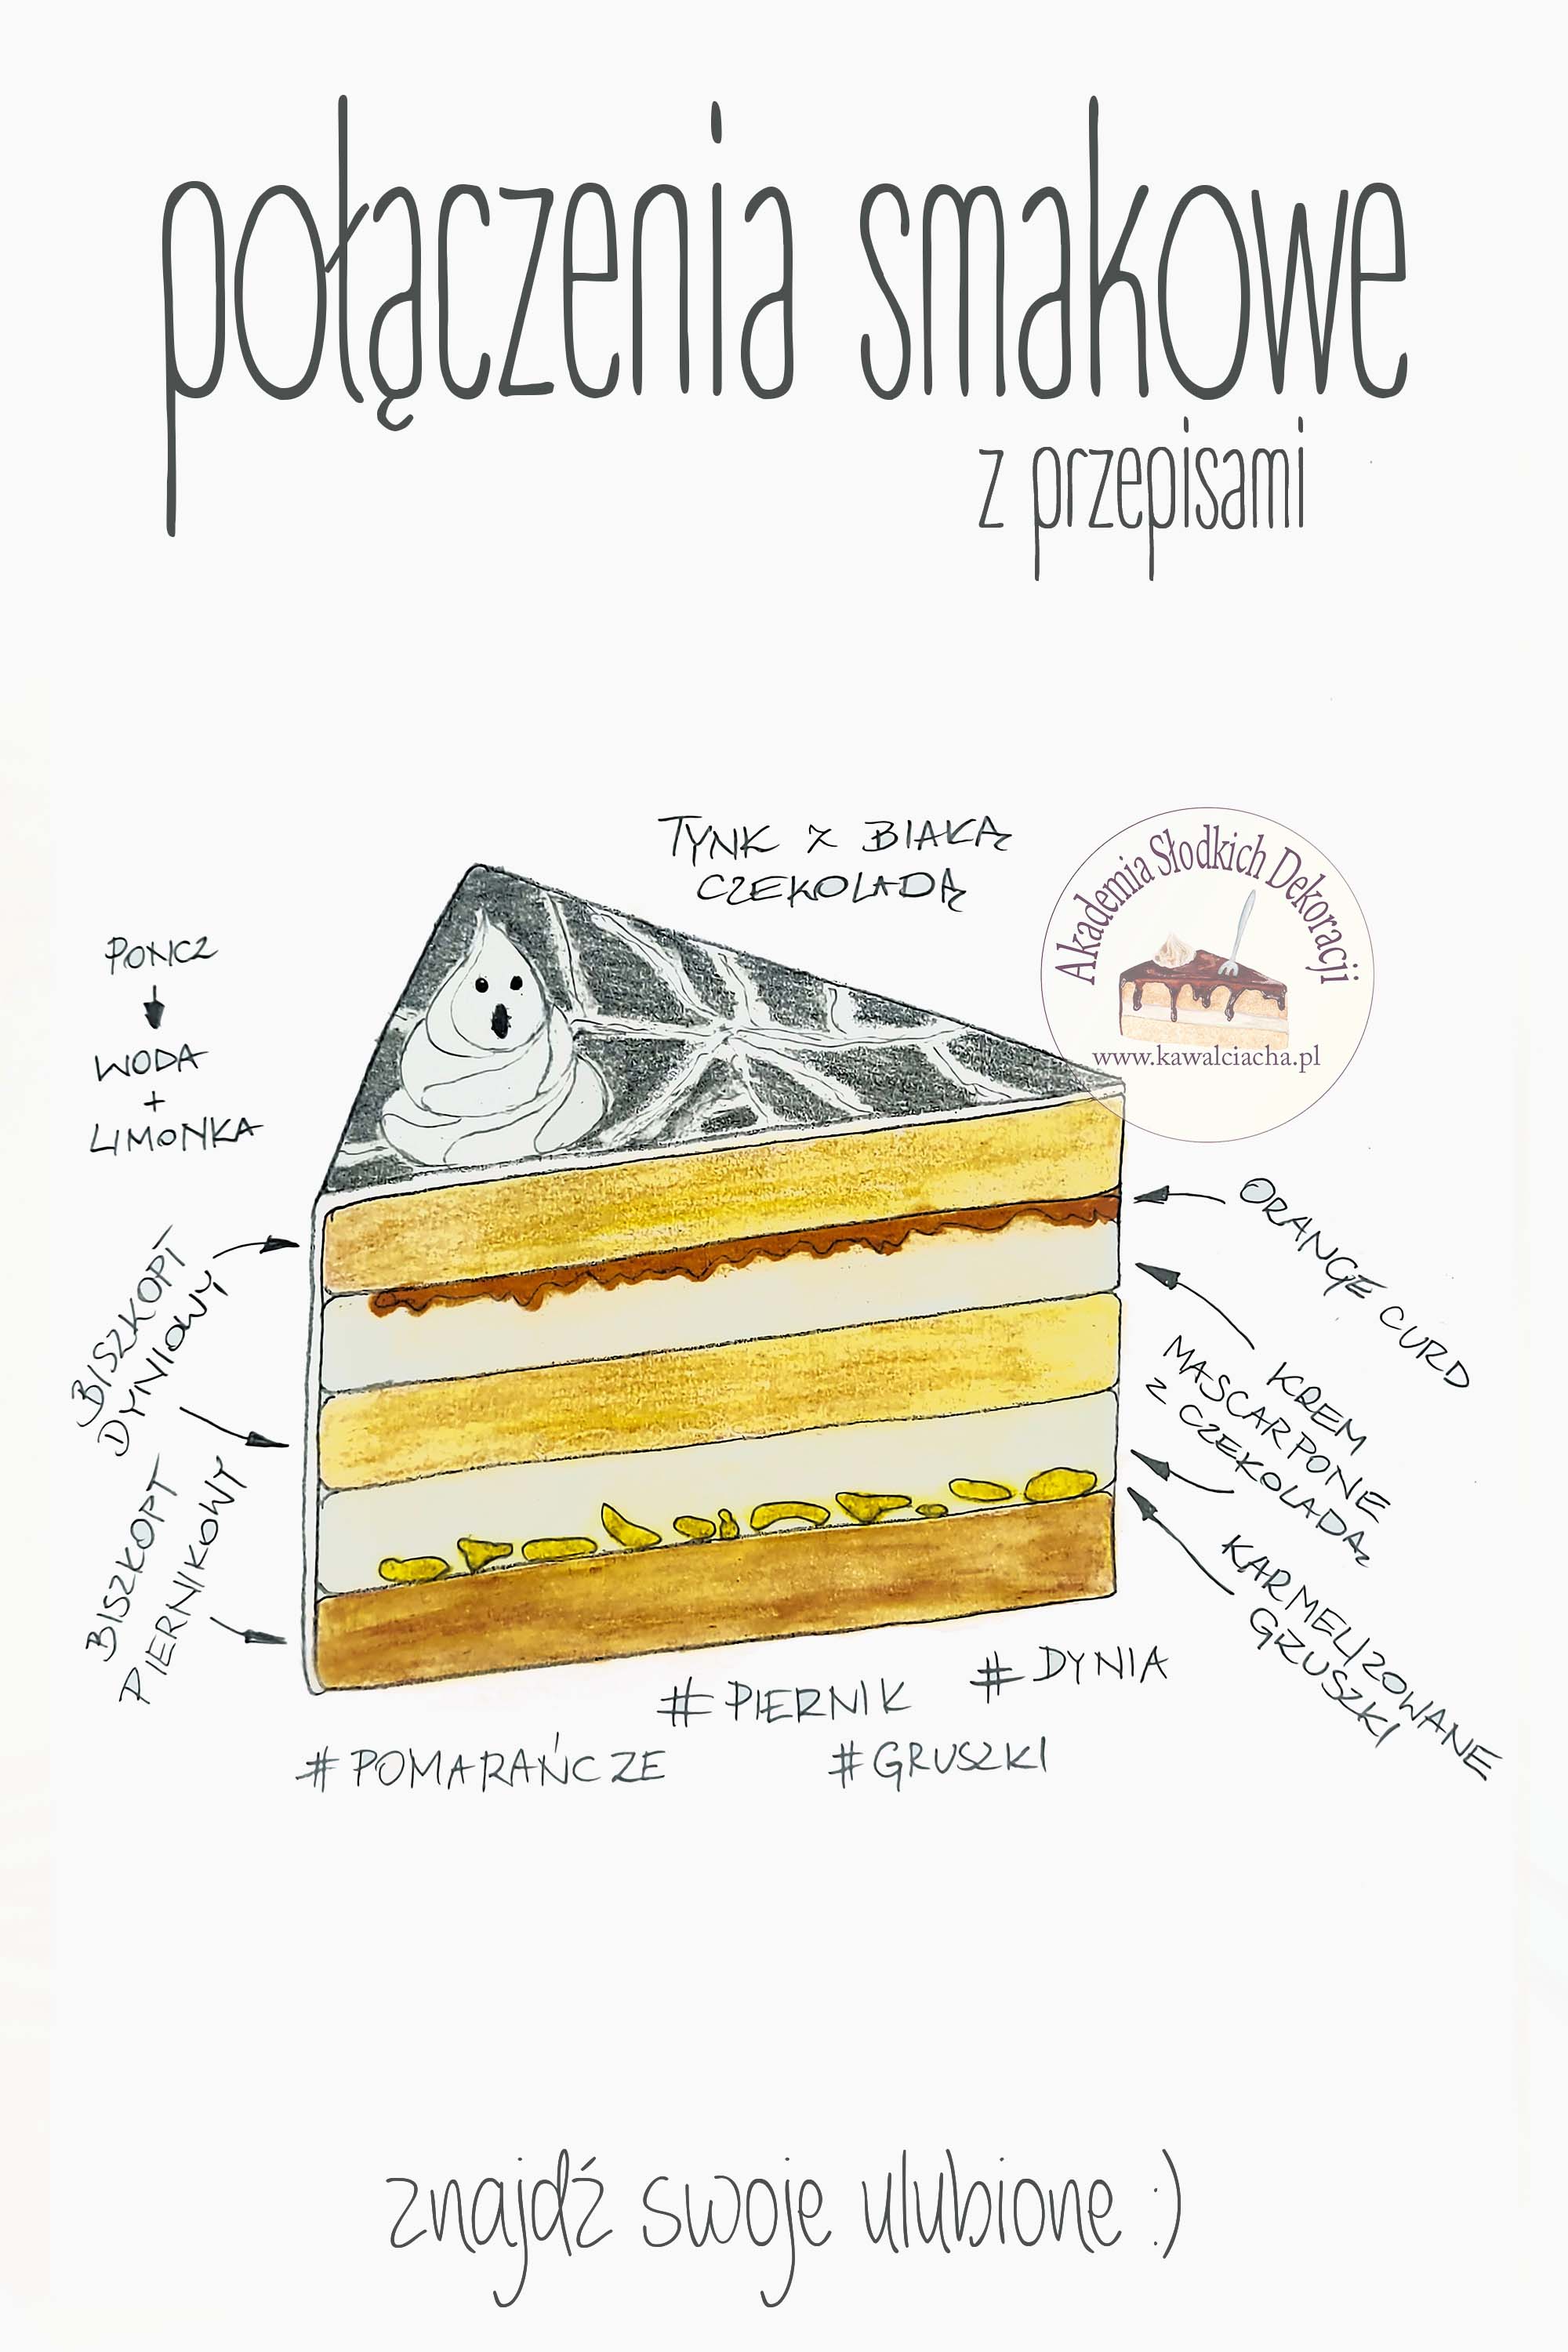 połączenia smakowe
z przepisami
TYNK Z BIAŁĄ
CZEKOLADĄ
Akademia Słodkich Dekoracji
www.kawalciacha.pl
PONCZ
WODA
+
LIMONKA
BISZKOPT
DYNIOWY
BISZKOPT
PIERNIKOWY
ORANGE CURD
KREM
MASCARPONE
Z CZEKOLADĄ
KARMELIZOWANE
GRUSZKI
#DYNIA
#PIERNIK
#POMARAŃCZE
#GRUSZKI
znajdź swoje ulubione :)